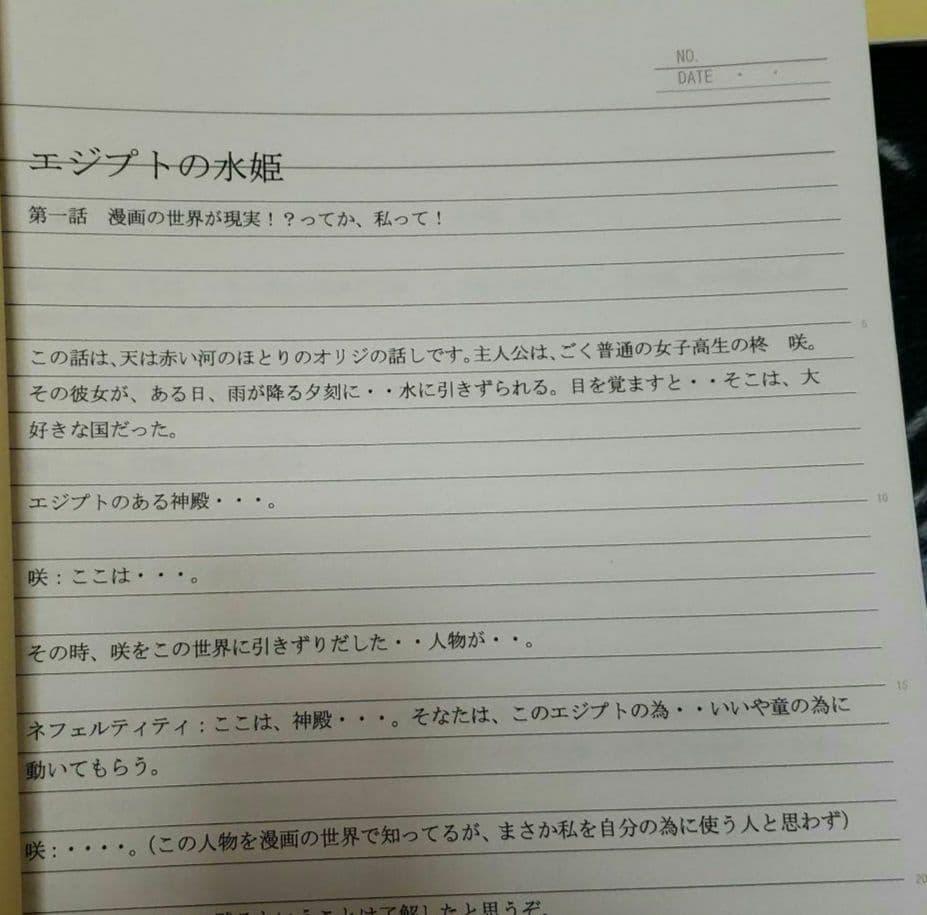 NO.
DATE ・ ・
エジプトの水姫
第一話　漫画の世界が現実！？ってか、私って！
5
この話は、天は赤い河のほとりのオリジの話しです。主人公は、ごく普通の女子高生の柊　咲。
その彼女が、ある日、雨が降る夕刻に・・水に引きずられる。目を覚ますと・・そこは、大
好きな国だった。
エジプトのある神殿・・・。
10
咲：ここは・・・。
その時、咲をこの世界に引きずりだした・・人物が・・。
15
ネフェルティティ：ここは、神殿・・・。そなたは、このエジプトの為・・いいや童の為に
動いてもらう。
咲：・・・・。（この人物を漫画の世界で知ってるが、まさか私を自分の為に使う人と思わず）
20
ということは了解したと思うぞ。